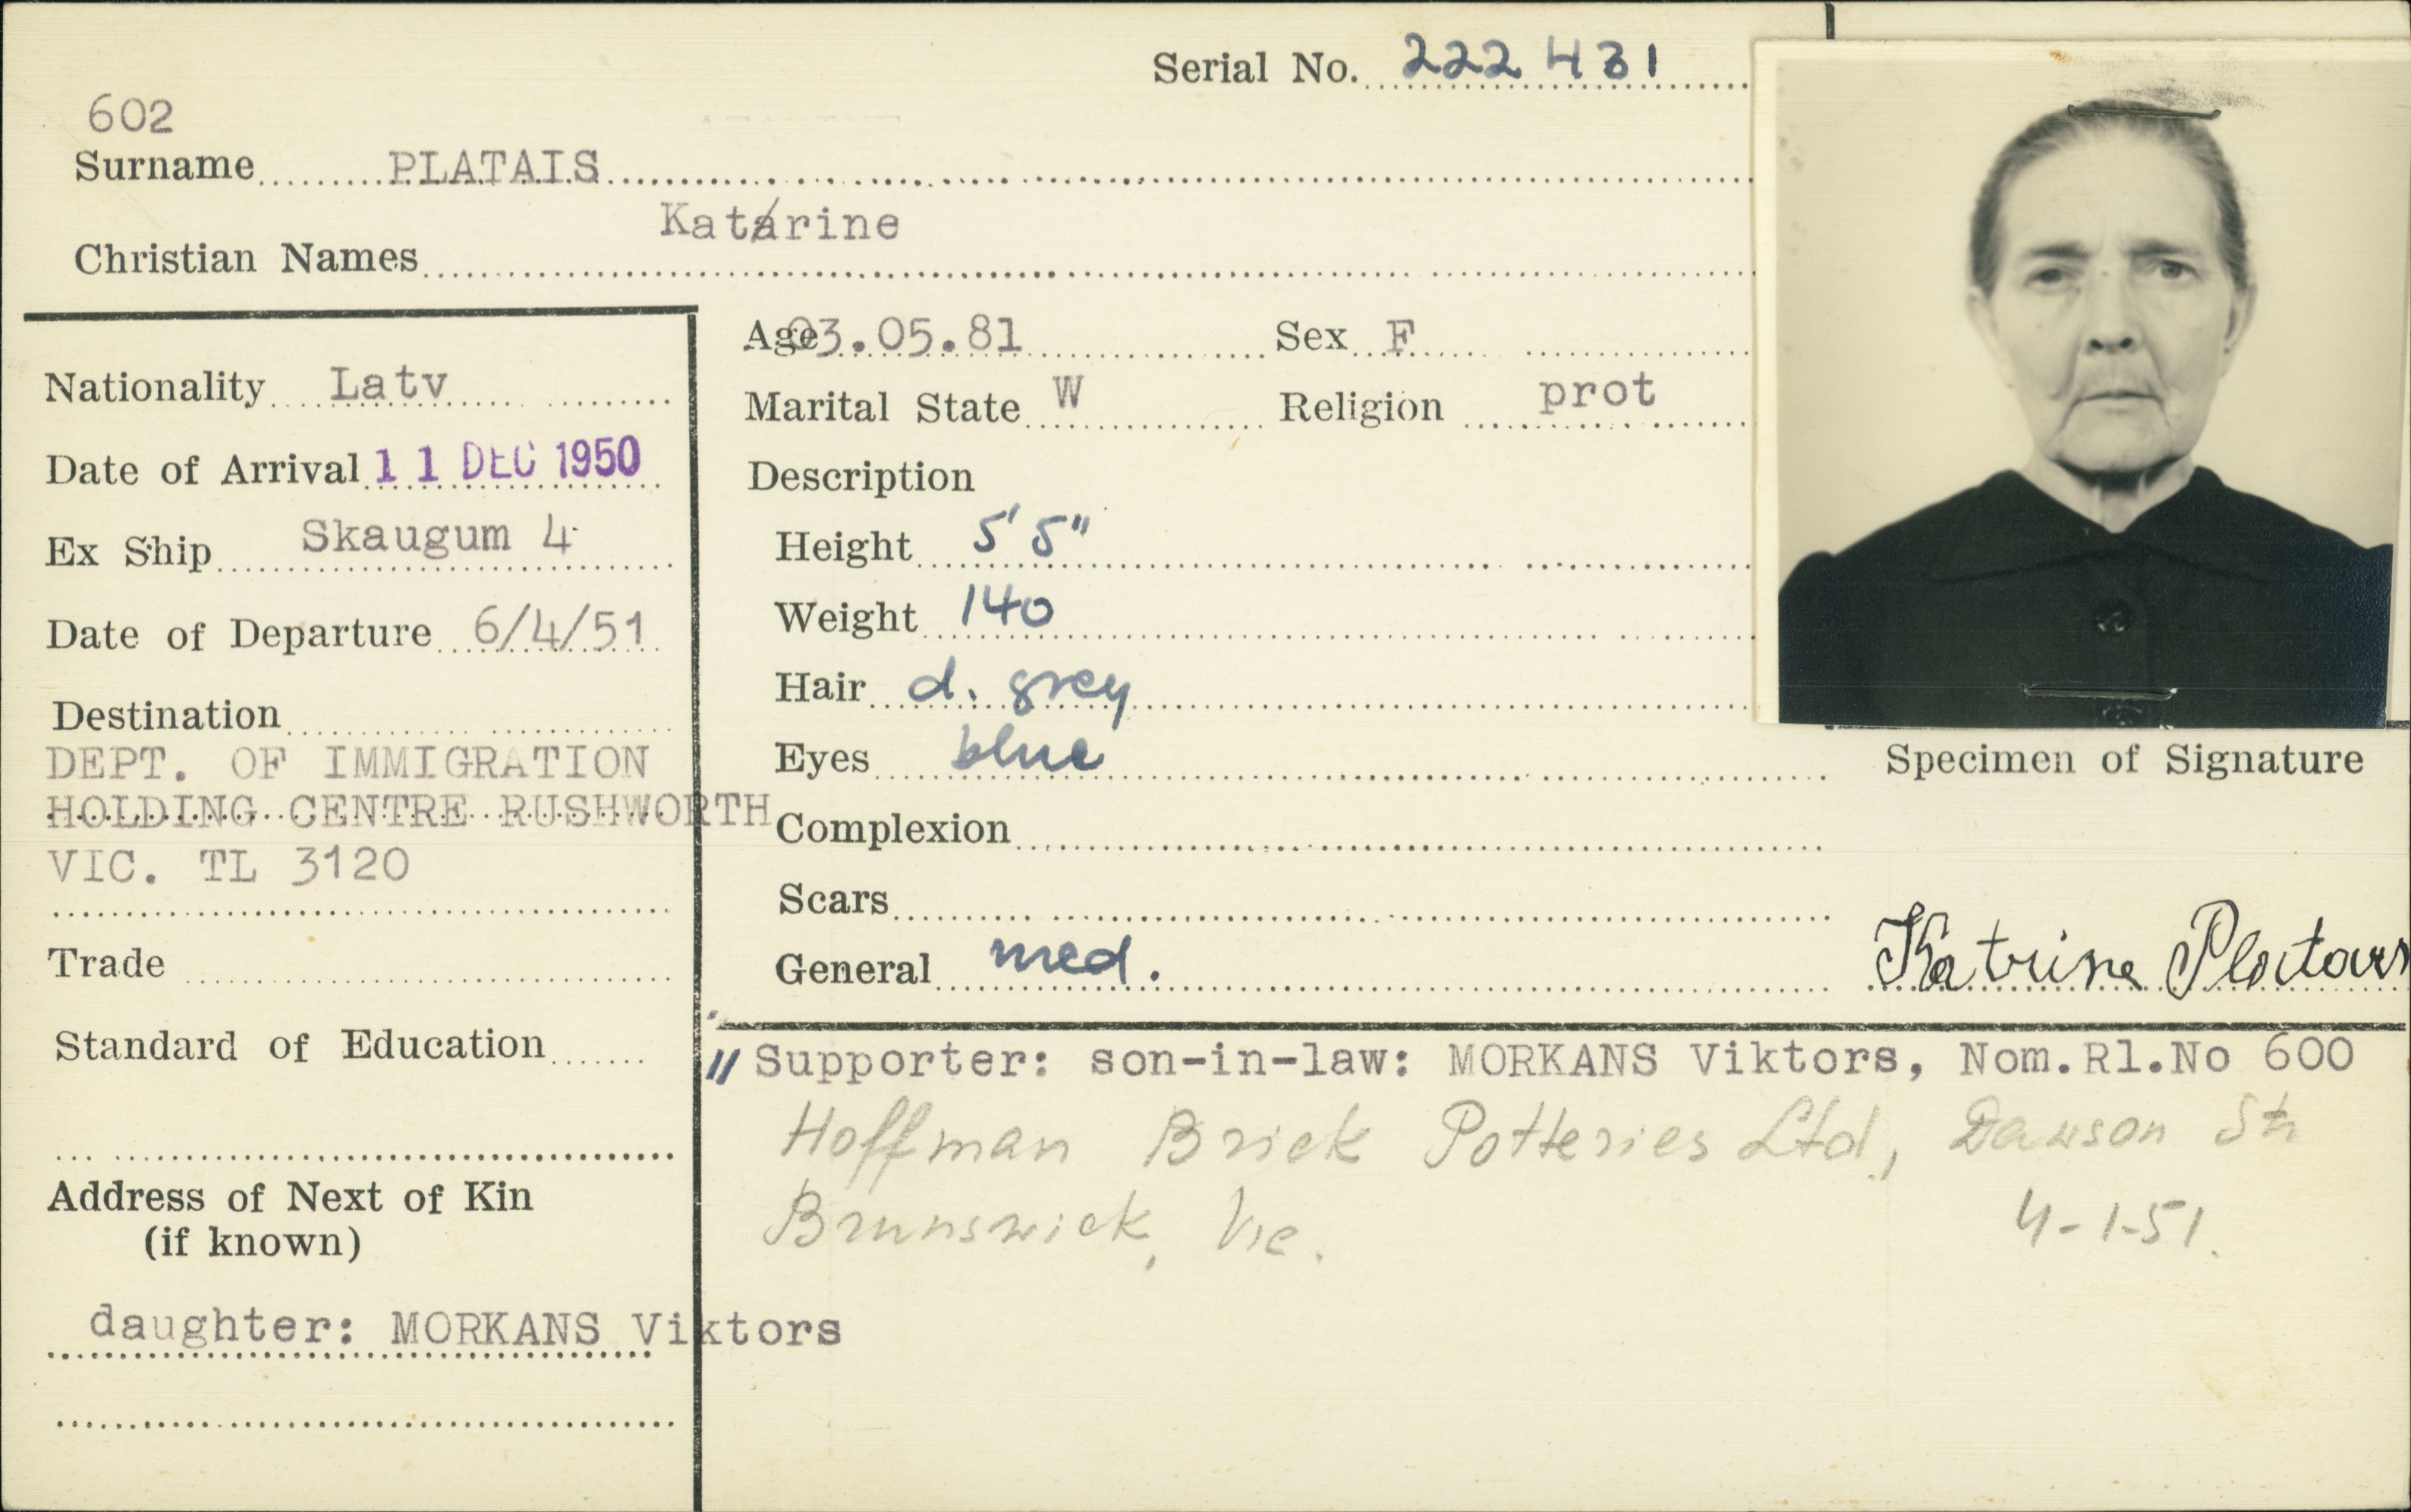 Serial No. 222 431
602
Surname PLATAIS
Christian Names Katarine
Nationality Latv
Date of Arrival 11 DEC 1950
Ex Ship Skaugum 4
Date of Departure 6/4/51
Destination
DEPT. OF IMMIGRATION
HOLDING CENTRE RUSHWORTH
VIC. TL 3120
Trade
Standard of Education
Address of Next of Kin
(if known)
daughter: MORKANS Viktors
Age 03.05.81 Sex F
Marital State W Religion prot
Description
Height 5' 5"
Weight 140
Hair d. grey
Eyes blue
Complexion
Scars
General med.
Specimen of Signature
Katrine Platais
" Supporter: son-in-law: MORKANS Viktors, Nom.Rl.No 600
Hoffman Brick Potteries Ltd, Dawson Str
Brunswick, Vic. 4-1-51.